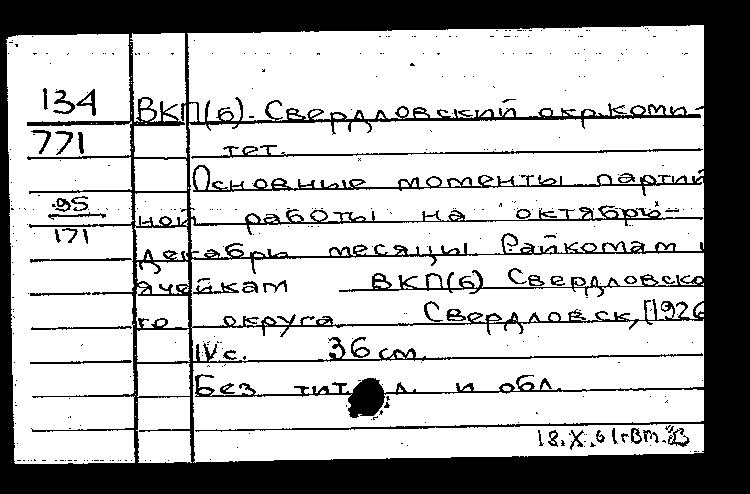 134 ВКП(б). Свердловский окр.коми-
771 тет.
Основные моменты партий
95 ной работы на октябрь-
171 декабрь месяцы Райкомам
ячейкам ВКП(б) Свердловско
го округа. Свердловск, [1926
IV с. 36 см.
Без тит. л. и обл.
18.X.61г